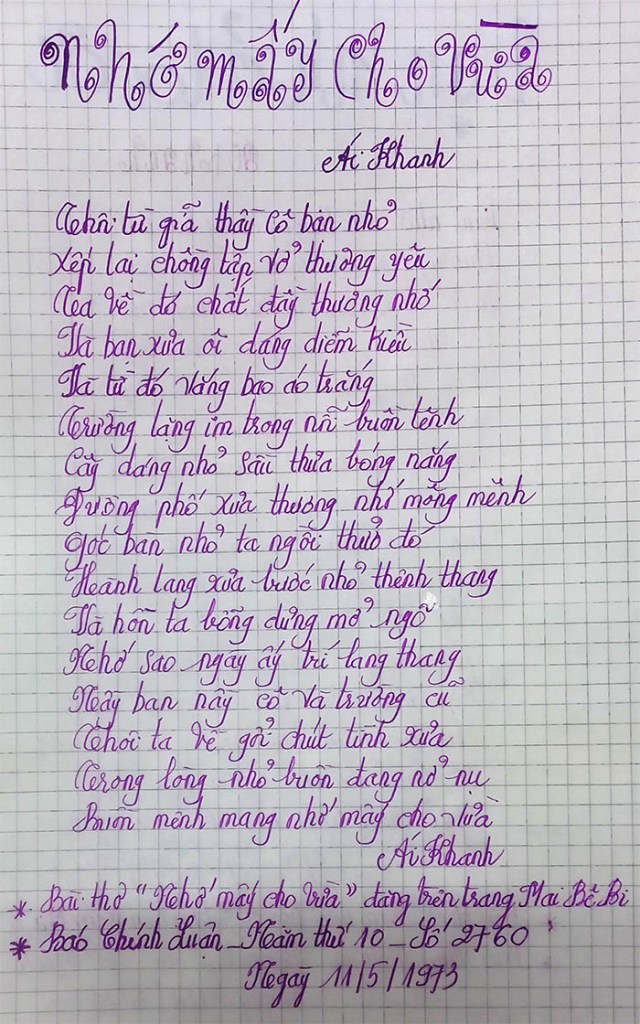 Nhớ mấy cho vừa
Ái Khanh
Thôi từ giã thầy cô bạn nhỏ
Xếp lại chồng tập vở thương yêu
Ta về đó chất đầy thương nhớ
Và bạn xưa ôi dáng diễm kiều
Và từ đó vắng bao áo trắng
Trường lặng im trong nỗi buồn tênh
Cây dáng nhỏ sầu thưa bóng nắng
Đường phố xưa thương nhớ mông mênh
Góc bàn nhỏ ta ngồi thuở đó
Hành lang xưa bước nhỏ thênh thang
Và hồn ta bỗng dưng mở ngỏ
Nhớ sao ngày ấy trí lang thang
Này bạn này cô và trường cũ
Thôi ta về gởi chút tình xưa
Trong lòng nhỏ buồn dang nở nụ
Buồn mênh mang nhớ mấy cho vừa
Ái Khanh
* Bài thơ "Nhớ mấy cho vừa" đăng trên trang Mai Bê Bi
* Báo Chính Luận - Năm thứ 10 - Số 2760
Ngày 11/5/1973